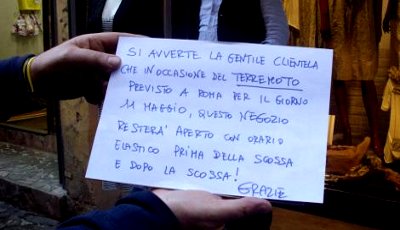 SI AVVERTE LA GENTILE CLIENTELA
CHE IN OCCASIONE DEL TERREMOTO
PREVISTO A ROMA PER IL GIORNO
11 MAGGIO, QUESTO NEGOZIO
RESTERA' APERTO CON ORARIO
ELASTICO PRIMA DELLA SCOSSA
E DOPO LA SCOSSA!
GRAZIE